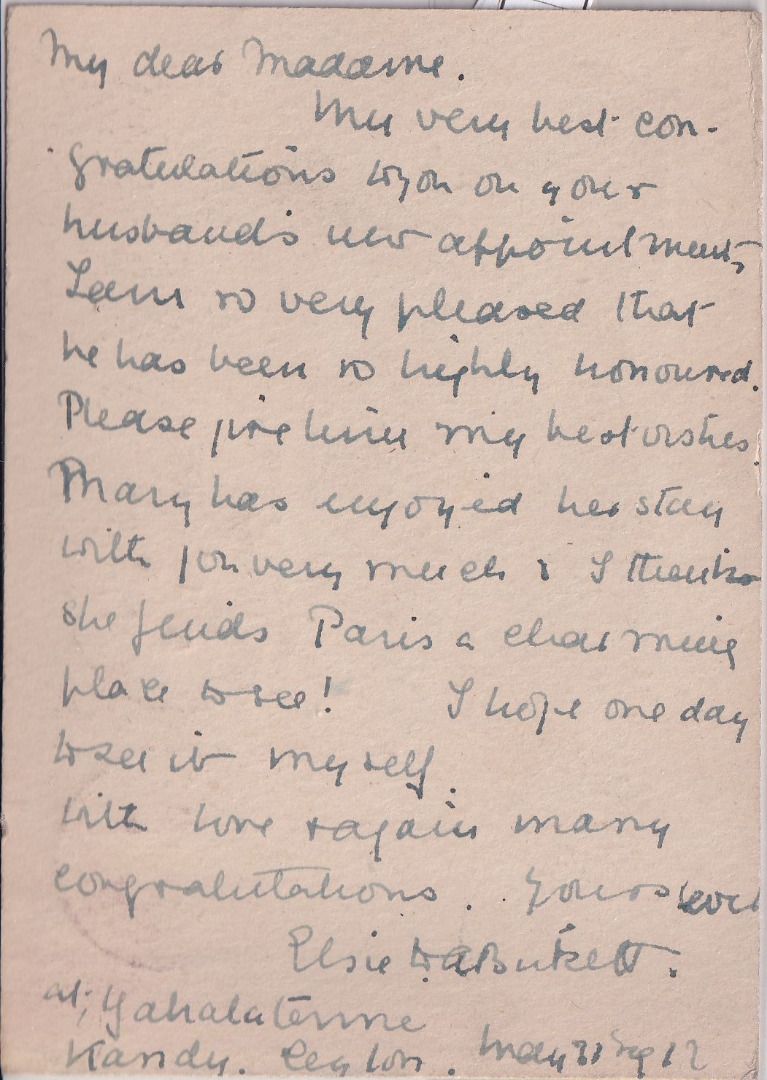 My dear Madame.
My very best con-
gratulations to you on your
husband's new appointment,
I am so very pleased that
he has been so highly honoured.
Please give him my best wishes.
Mary has enjoyed her stay
with you very much & I think
she finds Paris a charming
place to see! I hope one day
to see it myself.
With love & again many
congratulations. Yours
Elsie
at,
Kandy. Ceylon. May 21